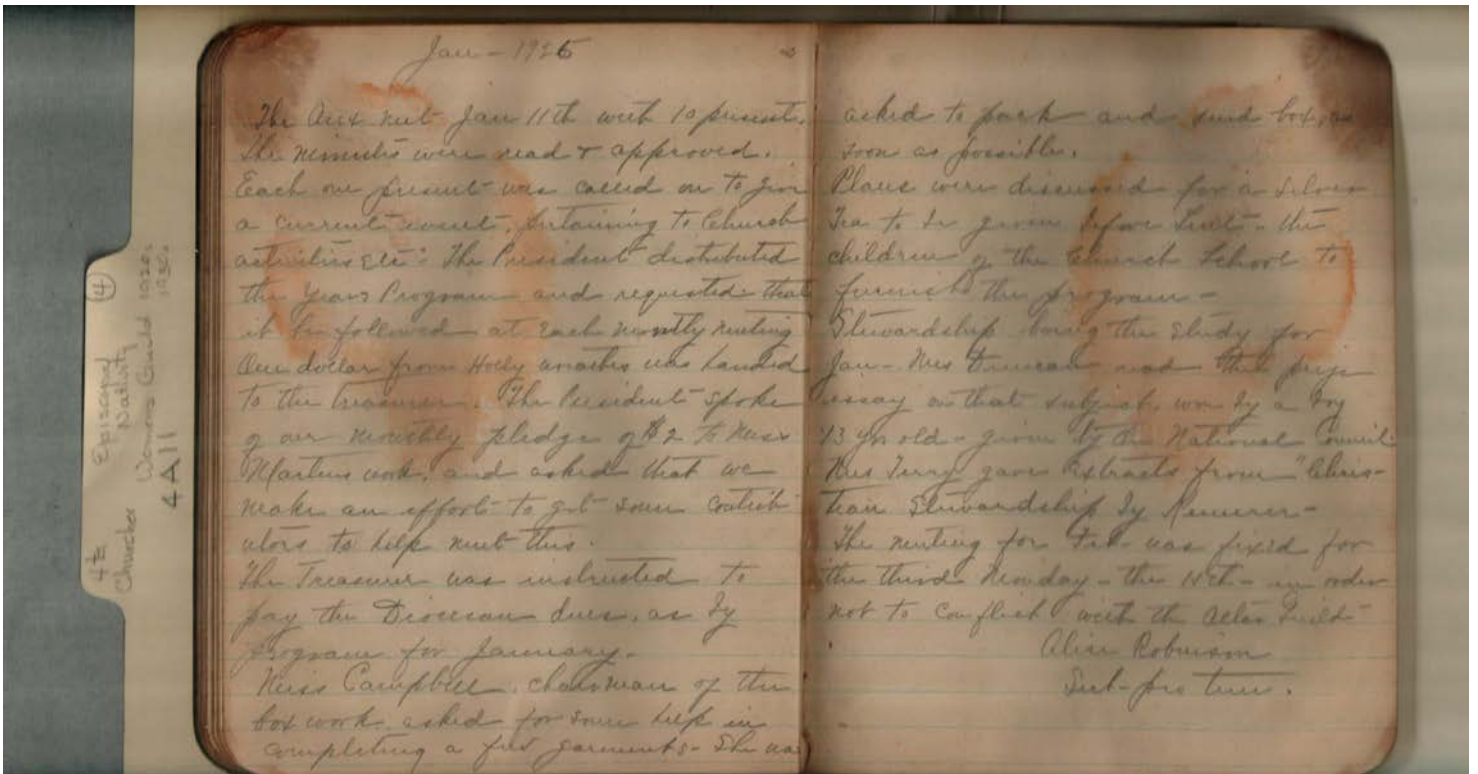 Jan - 1926
The Aux met Jan 11th with 10 present.
The minutes were read & approved.
Each one present was called on to give
a current event, pertaining to Church
activities etc. The President distributed
the Years Program and requested that
it be followed at each montly meeting
One dollar from Holly wreathes was handed
to the treasurer. The President spoke
of our monthly pledge of $2 to Miss
Martins work, and asked that we
make an effort to get some contrib-
utors to help meet this.
The Treasurer was instructed to
pay the Diocesan dues, as by
program for January.
Miss Campbell, chairman of the
box work, asked for some help in
completing a few garments - She was
asked to pack and send box, as
soon as possible.
Plans were discussed for a Silver
Tea to be given before Lent - the
children of the Church School to
furnish the program -
Stewardship being the study for
Jan - Mrs Duncan read the prize
essay on that subject, won by a boy
13 yrs old - given by the National Council
Mrs Terry gave extracts from "Chris-
tian Stewardship by
The meeting for Feb was fixed for
the third Monday - the 15th - in order
not to conflict with the Altar Guild
Aline Robinson
Sec-pro tem.
4th Episcopal 4
Churches Nativity
Womens Guild 1920s
1930s
4A11